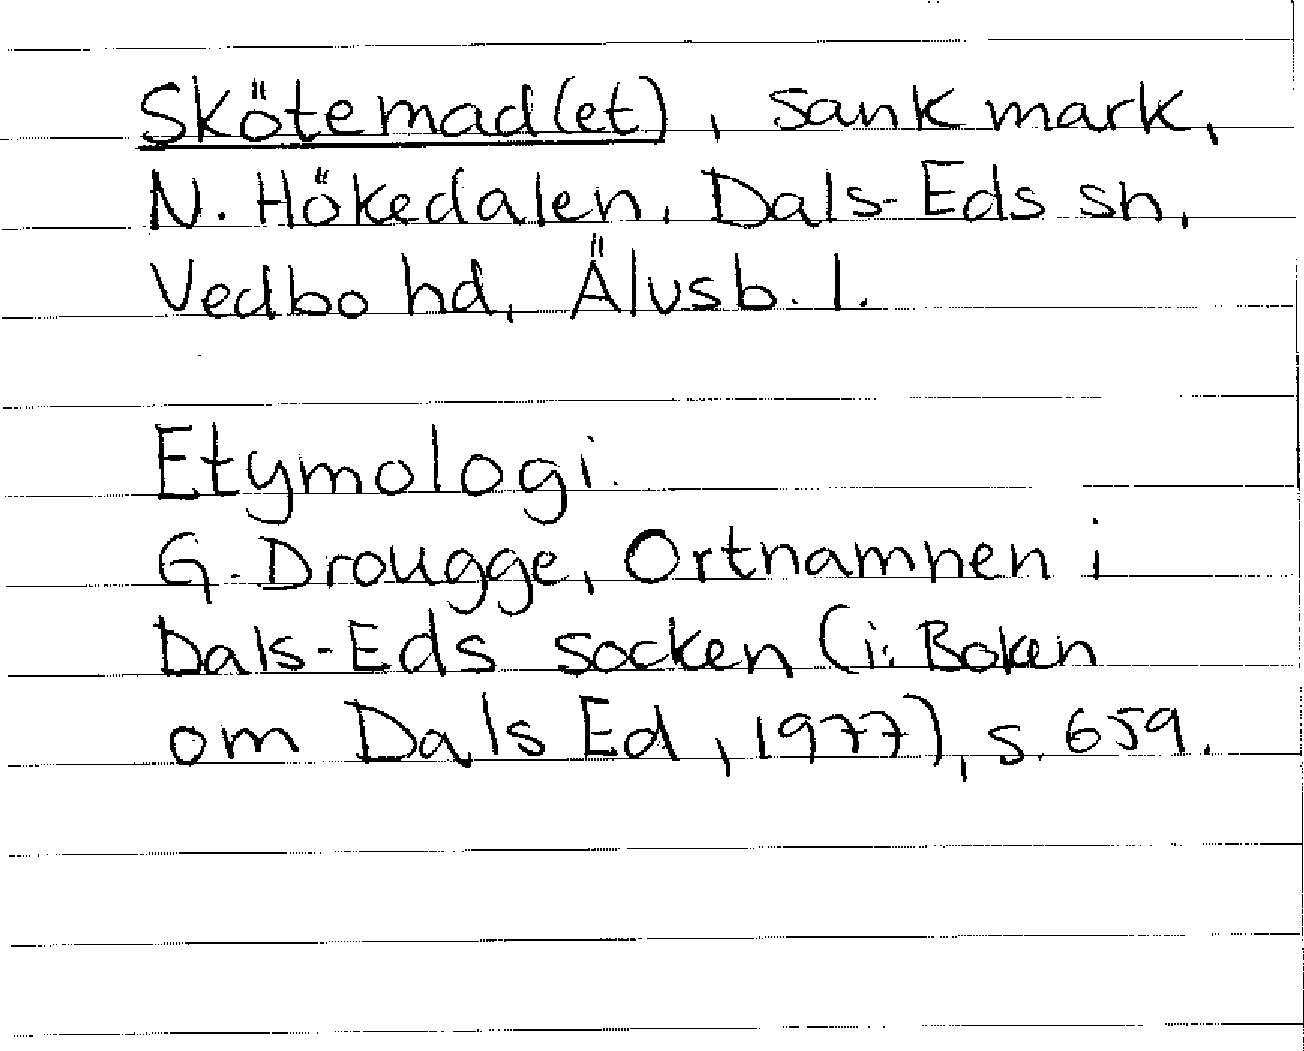 Skötemad(et), sank mark,
N. Hökedalen, Dals-Eds sn,
Vedbo hd, Älvsb. l.
Etymologi.
G. Drougge, Ortnamnen i
Dals-Eds socken (i: Boken
om Dals Ed, 1977), s. 659.